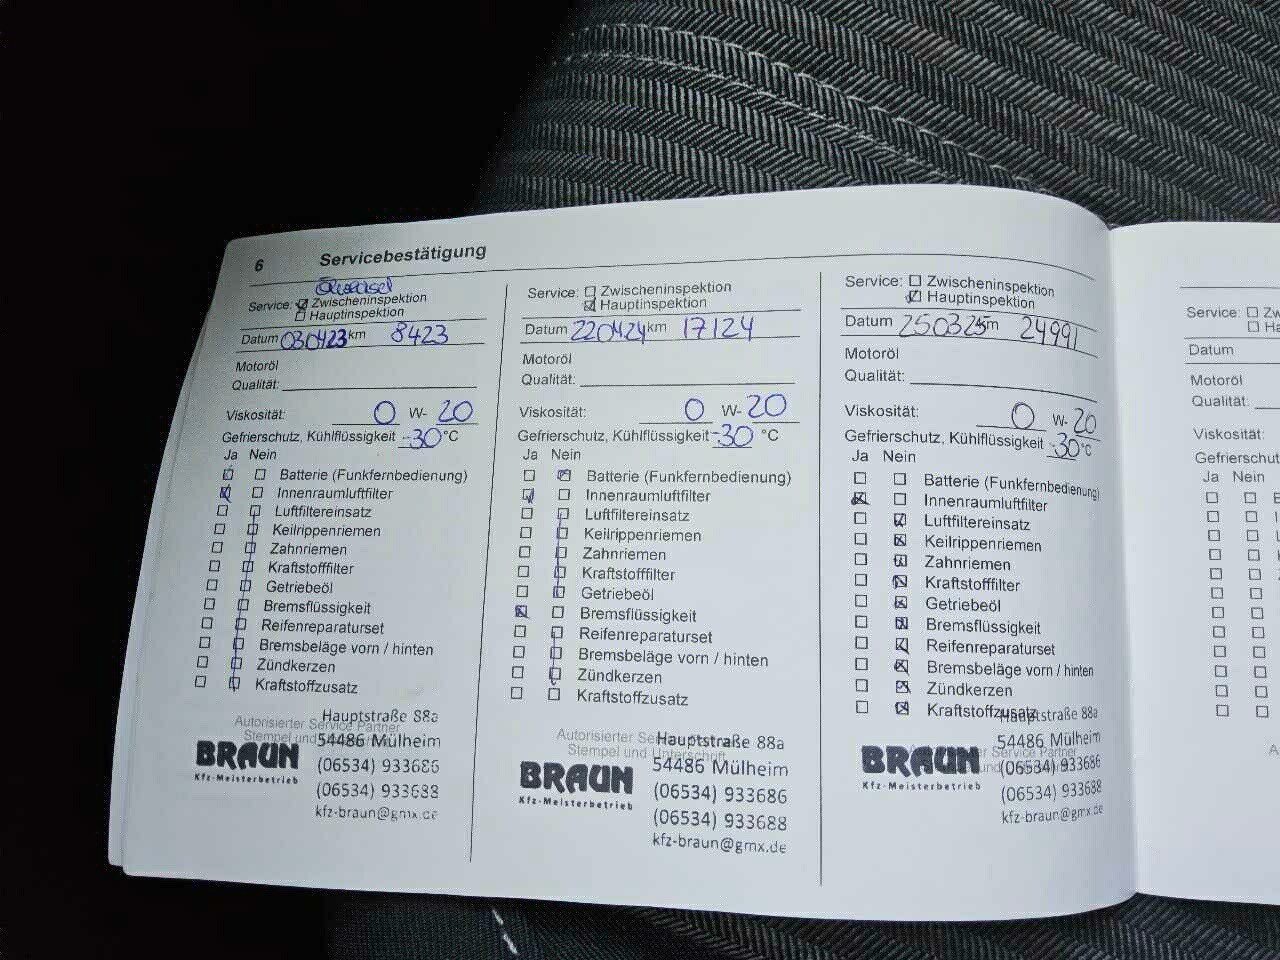 6 Servicebestätigung
Ölwechsel
Service: Zwischeninspektion
Hauptinspektion
Datum 030423 km 8423
Motoröl
Qualität:
Viskosität: 0 W- 20
Gefrierschutz, Kühlflüssigkeit -30 °C
Ja Nein
Batterie (Funkfernbedienung)
Innenraumluftfilter
Luftfiltereinsatz
Keilrippenriemen
Zahnriemen
Kraftstofffilter
Getriebeöl
Bremsflüssigkeit
Reifenreparaturset
Bremsbeläge vorn / hinten
Zündkerzen
Kraftstoffzusatz
Autorisierter Service Partner
Stempel und
Hauptstraße 88a
54486 Mülheim
BRAUN
Kfz-Meisterbetrieb
(06534) 933686
(06534) 933688
kfz-braun@gmx.de
Service: Zwischeninspektion
Hauptinspektion
Datum 220424 km 17124
Motoröl
Qualität:
Viskosität: 0 W- 20
Gefrierschutz, Kühlflüssigkeit -30 °C
Ja Nein
Batterie (Funkfernbedienung)
Innenraumluftfilter
Luftfiltereinsatz
Keilrippenriemen
Zahnriemen
Kraftstofffilter
Getriebeöl
Bremsflüssigkeit
Reifenreparaturset
Bremsbeläge vorn / hinten
Zündkerzen
Kraftstoffzusatz
Autorisierter
Stempel und Unterschrift
Hauptstraße 88a
54486 Mülheim
BRAUN
Kfz-Meisterbetrieb
(06534) 933686
(06534) 933688
kfz-braun@gmx.de
Service: Zwischeninspektion
Hauptinspektion
Datum 250325 km 24991
Motoröl
Qualität:
Viskosität: 0 W- 20
Gefrierschutz, Kühlflüssigkeit -30 °C
Ja Nein
Batterie (Funkfernbedienung)
Innenraumluftfilter
Luftfiltereinsatz
Keilrippenriemen
Zahnriemen
Kraftstofffilter
Getriebeöl
Bremsflüssigkeit
Reifenreparaturset
Bremsbeläge vorn / hinten
Zündkerzen
Kraftstoffzusatz
Service Partner
Hauptstraße 88a
54486 Mülheim
BRAUN
Kfz-Meisterbetrieb
(06534) 933686
(06534) 933688
kfz-braun@gmx.de
Service: Z
Ha
Datum
Motoröl
Qualität:
Viskosität:
Gefrierschutz
Ja Nein